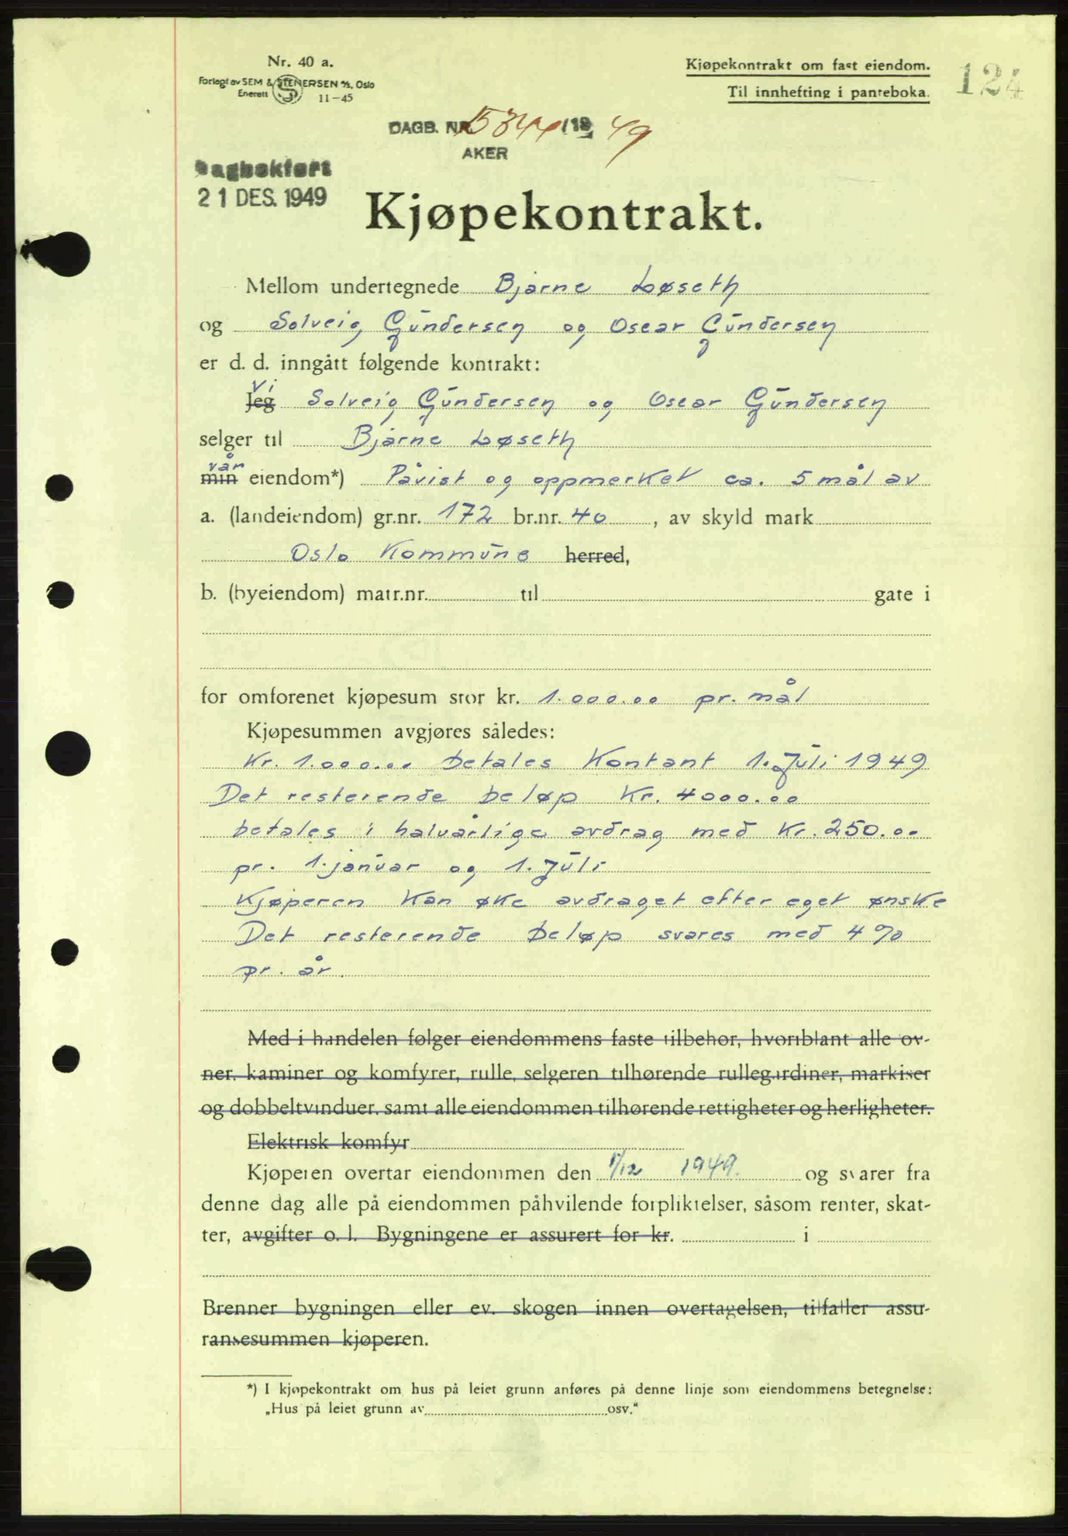 Nr. 40 a.
Forlagt av SEM & STENERSEN A/S, Oslo
Enerett 11-45
Kjøpekontrakt om fast eiendom.
Til innhefting i panteboka.
124
DAGB. NR. /19 49
AKER
Dagbokført
21 DES. 1949
Kjøpekontrakt.
Mellom undertegnede Bjarne Løseth
og Solveig Gundersen og Oscar Gundersen
er d. d. inngått følgende kontrakt:
vi
Jeg Solveig Gundersen og Oscar Gundersen
selger til Bjarne Løseth
vår
min eiendom*) Påvist og oppmerket ca. 5 mål av
a. (landeiendom) gr.nr. 172 br.nr. 40 , av skyld mark
Oslo Kommune herred,
b. (byeiendom) matr.nr. til gate i
for omforenet kjøpesum stor kr. 1.000.00 pr. mål
Kjøpesummen avgjøres således:
Kr. 1.000.00 betales Kontant 1. Juli 1949
Det resterende beløp Kr. 4000.00
betales i halvårlige avdrag med Kr. 250.00
pr. 1. januar og 1. Juli
Kjøperen Kan øke avdraget efter eget ønske
Det resterende beløp svares med 4 %
pr. år.
Med i handelen følger eiendommens faste tilbehør, hvoriblant alle ov-
ner, kaminer og komfyrer, rulle, selgeren tilhørende rullegardiner, markiser
og dobbeltvinduer, samt alle eiendommen tilhørende rettigheter og herligheter.
Elektrisk komfyr
Kjøperen overtar eiendommen den 1/12 1949. og svarer fra
denne dag alle på eiendommen påhvilende forpliktelser, såsom renter, skat-
ter, avgifter o. l. Bygningene er assurert for kr. i
Brenner bygningen eller ev. skogen innen overtagelsen, tilfaller assu-
ransesummen kjøperen.
*) I kjøpekontrakt om hus på leiet grunn anføres på denne linje som eiendommens betegnelse:
„Hus på leiet grunn av osv.“